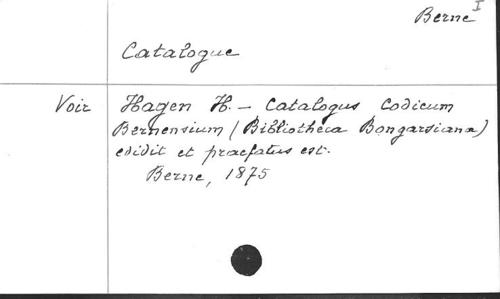 Berne I
Catalogue
Voir Hagen H. – Catalogus Codicum
Bernensium (Bibliotheca Bongarsiana)
edidit et praefatus est.
Berne, 1875